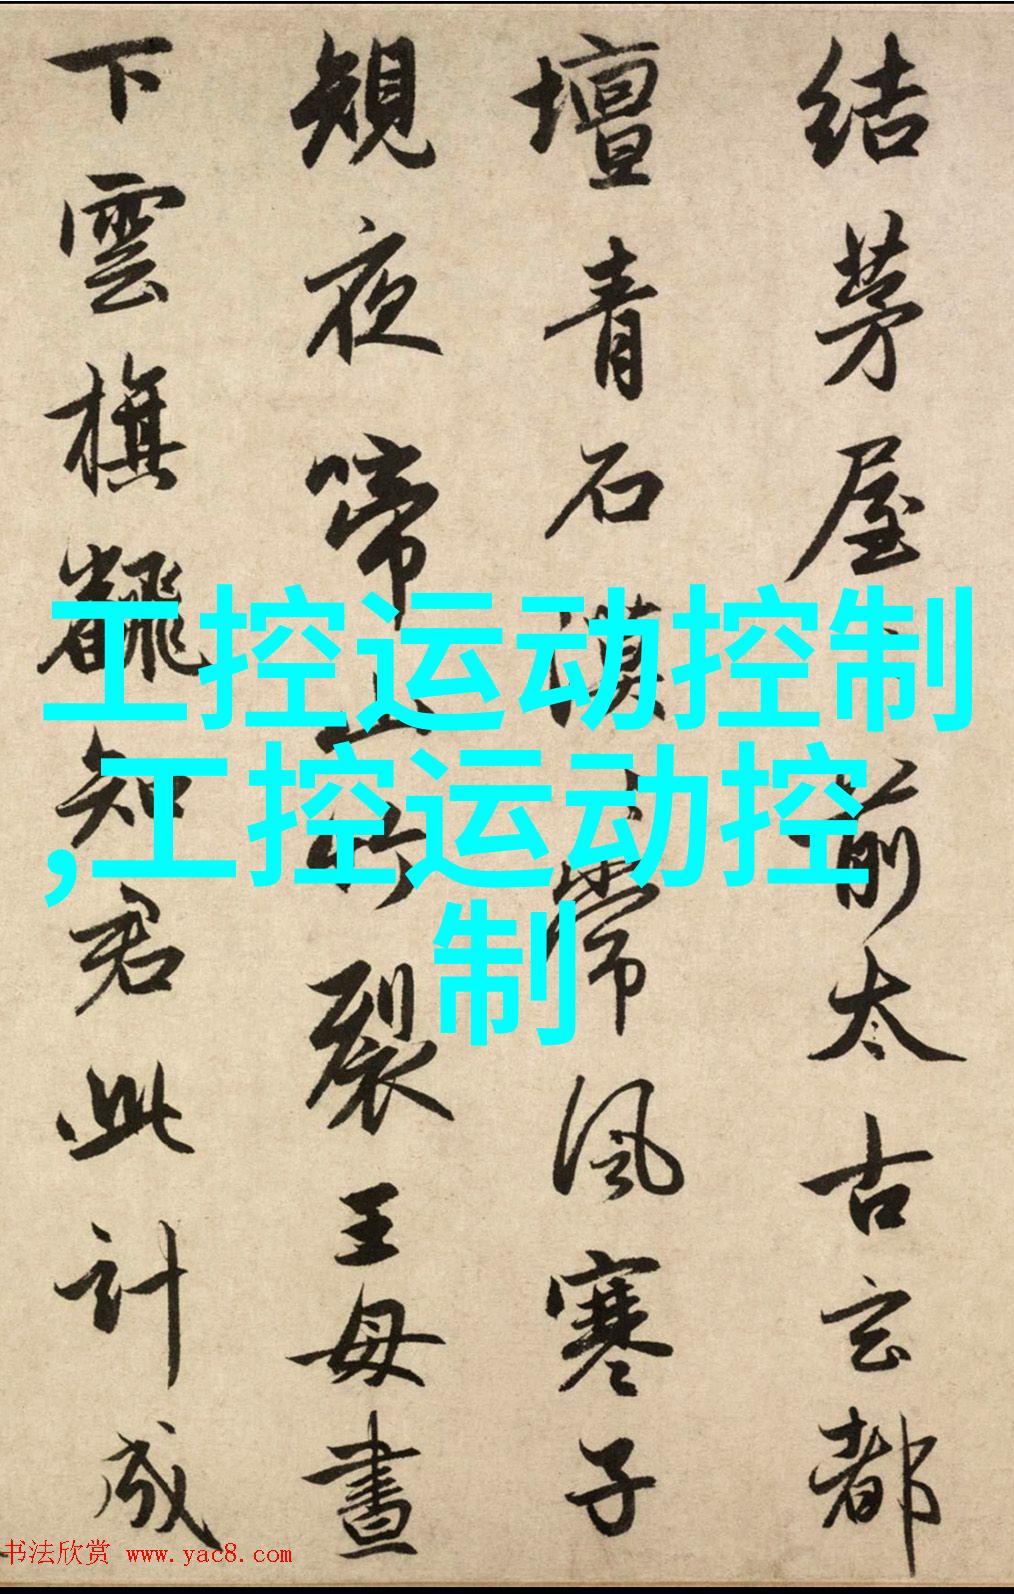 結茅屋〻前太古玄都
壇青石漠〻常風寒子
規夜啼山竹裂王母晝
下雲旗飜知君此計成
工控运动控制
,工控运动控
制
书法欣赏 www.yac8.com